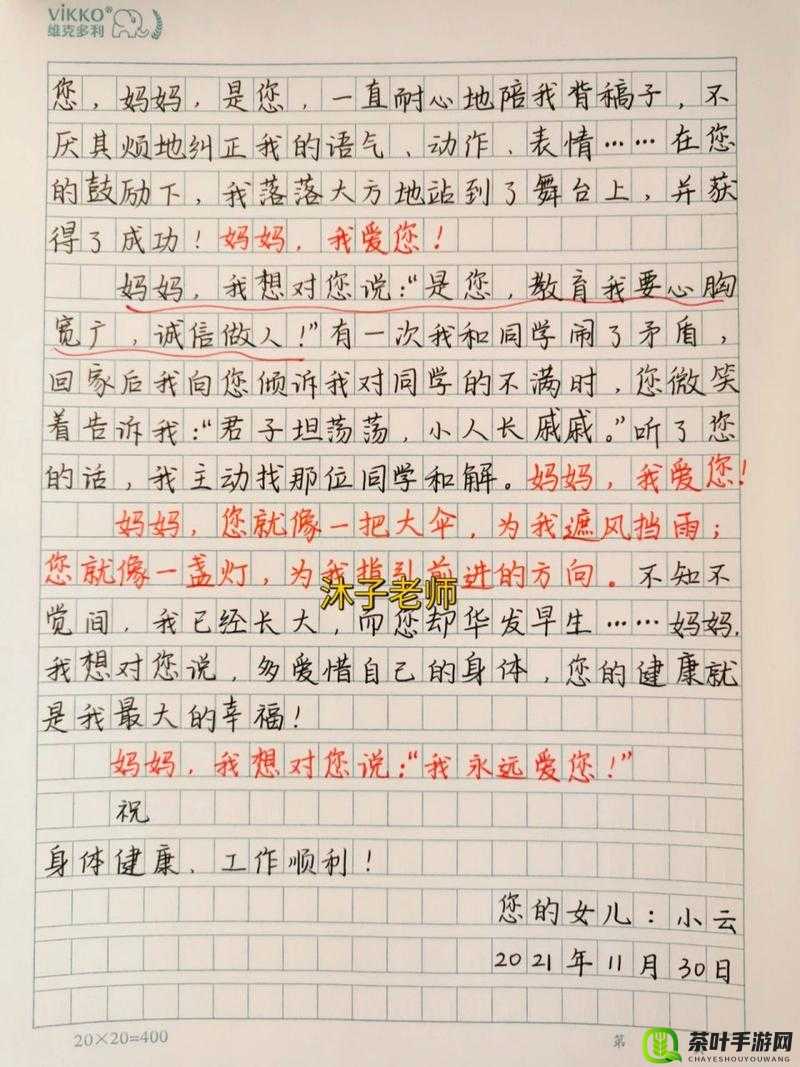 ViKKO®
维克多利
您，妈妈，是您，一直耐心地陪我背稿子，不
厌其烦地纠正我的语气、动作、表情……在您
的鼓励下，我落落大方地站到了舞台上，并获
得了成功！妈妈，我爱您！
妈妈，我想对您说：“是您，教育我要心胸
宽广，诚信做人！”有一次我和同学闹了矛盾，
回家后我向您倾诉我对同学的不满时，您微笑
着告诉我：“君子坦荡荡，小人长戚戚。”听了您
的话，我主动找那位同学和解。妈妈，我爱您！
妈妈，您就像一把大伞，为我遮风挡雨；
您就像一盏灯，为我指引前进的方向。不知不
沐子老师
觉间，我已经长大，而您却华发早生……妈妈，
我想对您说，多爱惜自己的身体，您的健康就
是我最大的幸福！
妈妈，我想对您说：“我永远爱您！”
祝
身体健康、工作顺利！
您的女儿：小云
2021年11月30日
20×20=400
第
茶叶手游网
CHAYESHOUYOUWANG